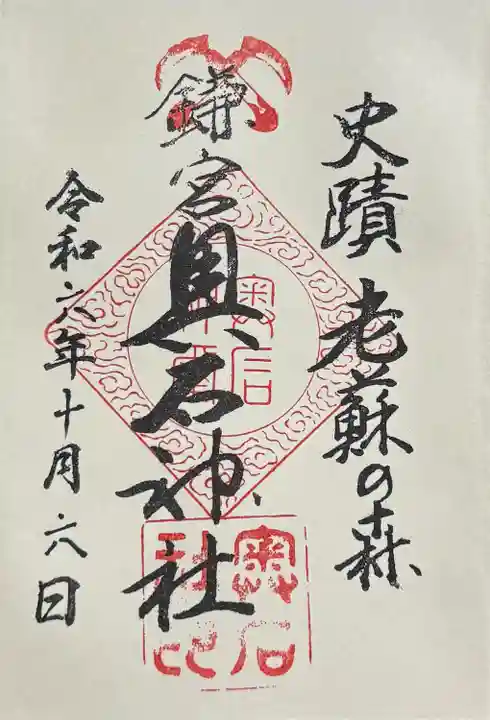 史蹟 老蘇の森
鎌宮奥石神社
令和六年十月六八日
奥石
神社
奥石
社